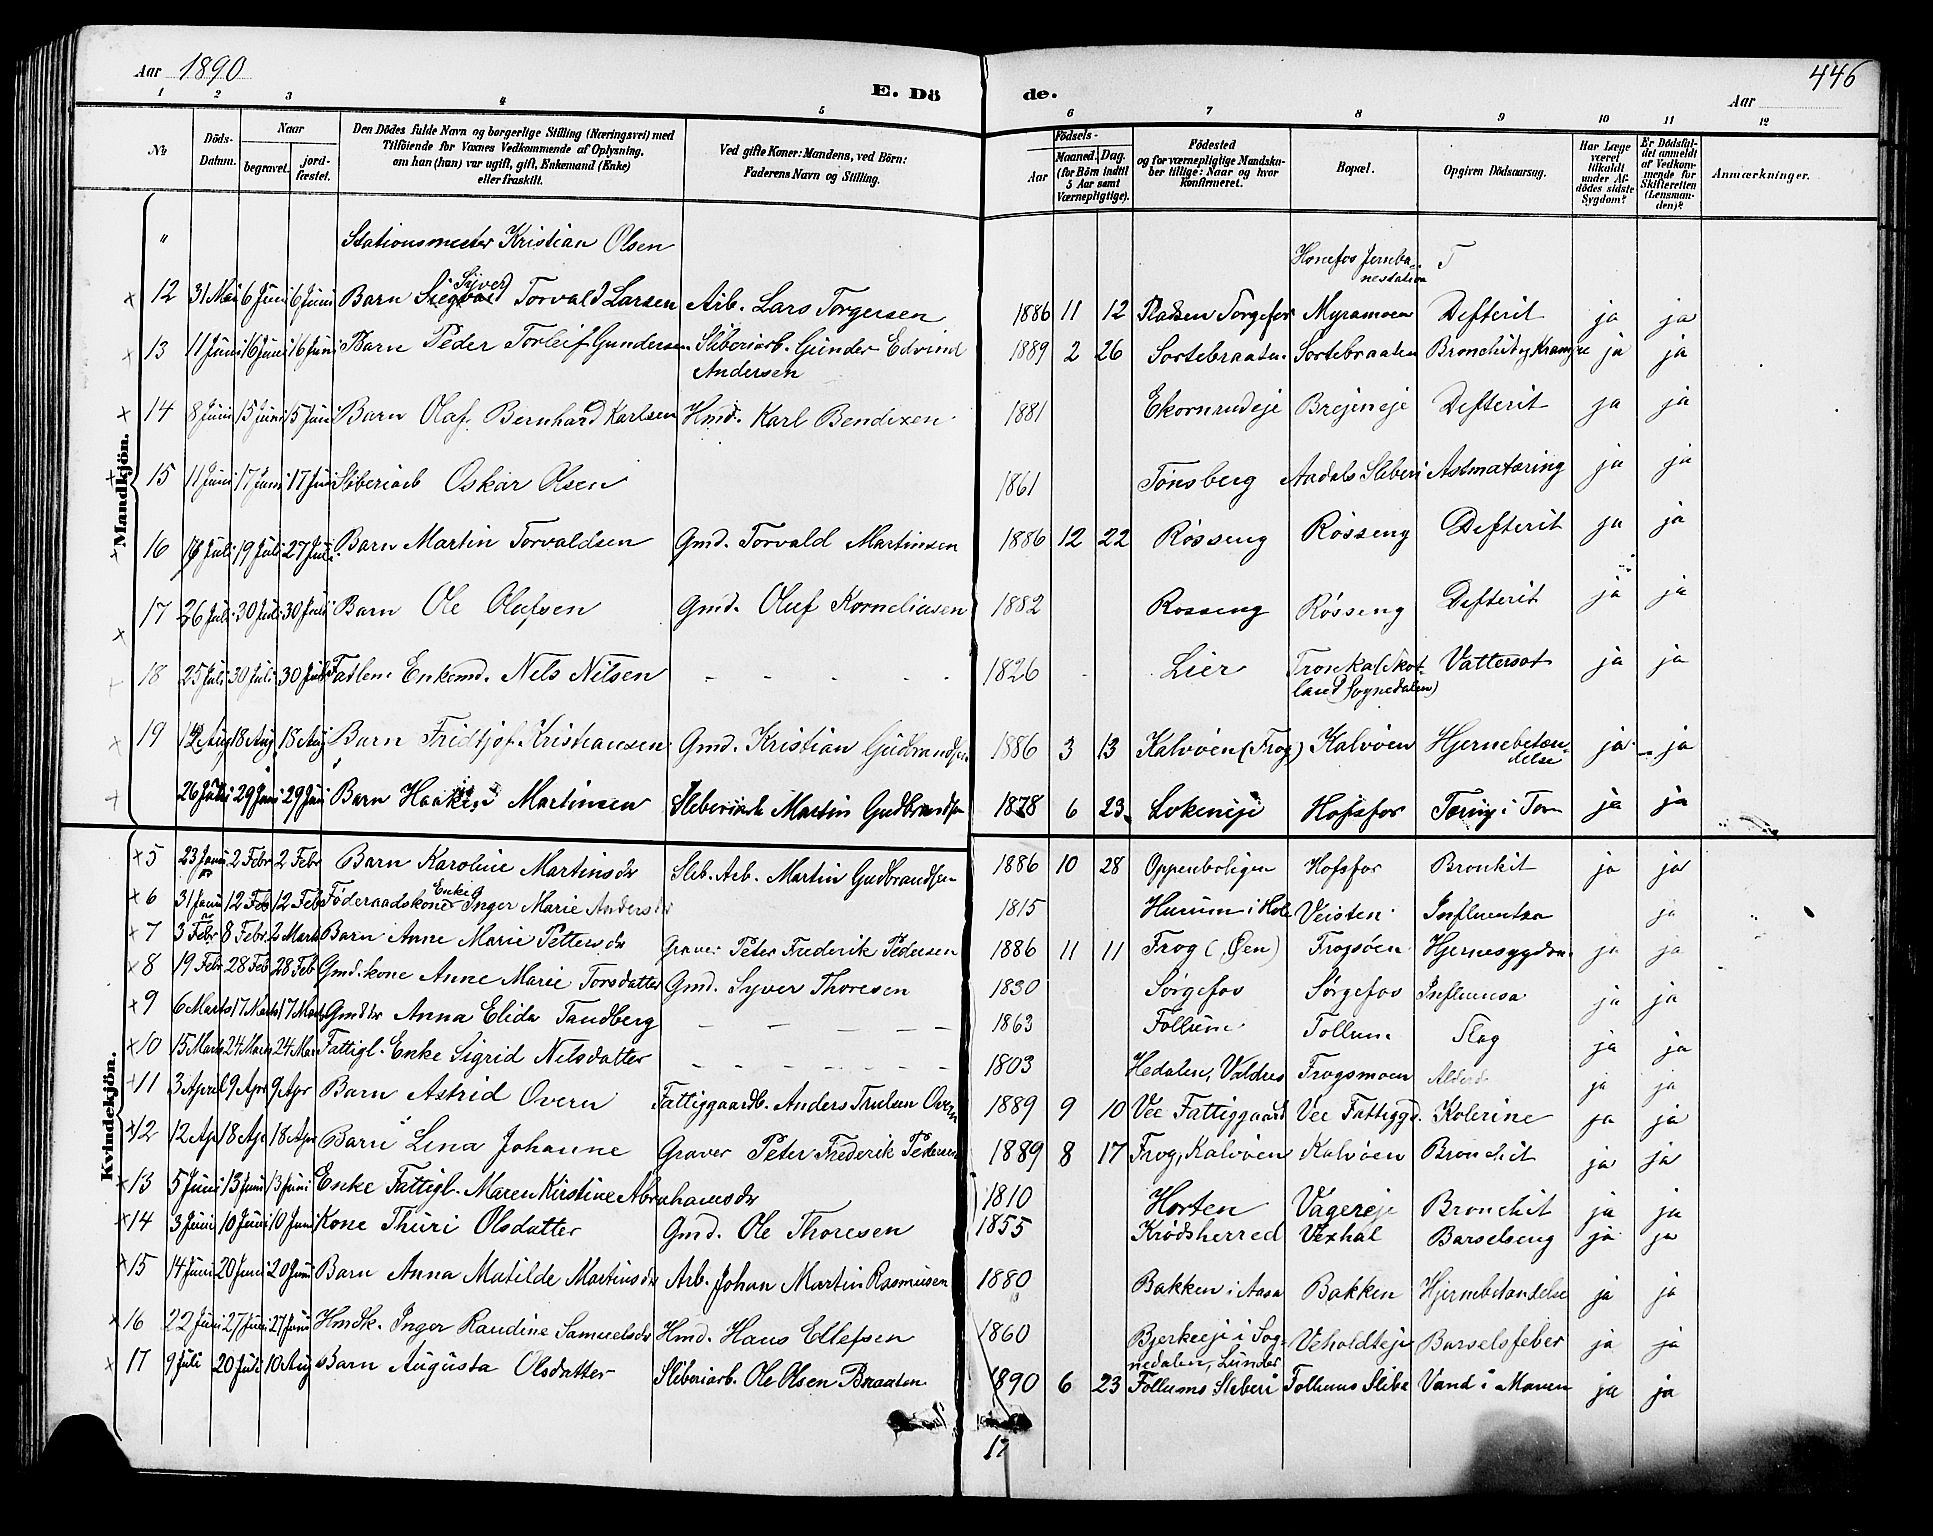 Aar 1890
E. Döde.
446
Aar
1 2 3 4 5 6 7 8 9 10 11 12
No
Döds-Datum.
Naar begravet. jordfæstet.
Den Dödes fulde Navn og borgerlige Stilling (Næringsvei) med Tilföiende for Voxnes Vedkommende af Oplysning, om han (hun) var ugift, gift, Enkemand (Enke) eller fraskilt.
Ved gifte Koner: Mandens, ved Börn: Faderens Navn og Stilling.
Födsels-
Aar
Maaned. Dag.
(for Börn indtil 5 Aar samt Værnepligtige).
Födested og for værnepligtige Mandskaber tillige: Naar og hvor konfirmeret.
Bopæl.
Opgiven Dödsaarsag.
Har Læge været tilkaldt under Afdödes sidste Sygdom?
Er Dödsfaldet anmeldt af Vedkommende for Skifteretten (Lensmanden)?
Anmærkninger.
Mandkjön.
" Stationsmester Kristian Olsen Hønefos Jernbanestation
12 31 Mai 6 Juni 6 Juni Barn Syver Torvald Larsen Arb. Lars Torgersen 1886 11 12 Pladsen Sørgefos Myramoen Defterit ja ja
13 11 Juni 16 Juni 16 Juni Barn Peder Torleif Gundersen Sliberiarb. Gunder Edvind Andersen 1889 2 26 Sortebraaten Sortebraaten Bronchit og Krampe ja ja
14 8 Juni 15 Juni 15 Juni Barn Olaf Bernhard Karlsen Hmd. Karl Bendixen 1881 Ekornrudeje Brejneje Defterit ja ja
15 11 Juni 17 Juni 17 Juni Sliberiarb Oskar Olsen 1861 Tønsberg Aadals Sliberi Astmatæring ja ja
16 Juli 19 Juli 27 Juli Barn Martin Torvaldsen Gmd. Torvald Martinsen 1886 12 22 Røsseng Røsseng Defterit ja ja
17 26 Juli 30 Juli 30 Juli Barn Ole Olafsen Gmd. Oluf Korneliusen 1882 Rosseng Røsseng Defterit ja ja
18 25 Juli 30 Juli 30 Juli Enkemd. Nels Nilsen - - - - - 1826 Lier Vattersot ja ja
19 12 Aug 18 Aug 18 Aug Barn Fridtjof Kristiansen Gmd. Kristian Gudbrandsen 1886 3 13 Kalvøen (Frog) Kalvøen Hjernebetændelse ja ja
26 29 Juni 29 Juni Barn Haakon Martinsen Sliberiarb Martin Gudbrandsen 1878 6 23 Lokeneje Hofsfos Tæring ja ja
Kvindekjön.
5 23 Janu 2 Febr 2 Febr Barn Karoline Martinsdr Slib. Arb. Martin Gudbrandsen 1886 10 28 Oppenboligen Hofsfos Bronkit ja ja
6 31 Janu 12 Feb 12 Feb Føderaadskone Enke Inger Marie Andersdr 1815 Hurum i Hole Veisten Influentsa ja
7 3 Febr 8 Febr 2 Marts Barn Anne Marie Pettersdr Graver Peter Frederik Pedersen 1886 11 11 Frog (Øen) Frogsøen Hjernesygdom ja ja
8 19 Febr 28 Feb 28 Feb Gmd.kone Anne Marie Torsdatter Gmd. Syver Thoresen 1830 Sørgefos Sørgefos Influensa ja ja
9 6 Marts 17 Marts 17 Marts Gmddr Anna Elida Tandberg - - - - - 1863 Follum Follum Slag ja ja
10 15 Marts 24 Marts 24 Mar Fattigl. Enke Sigrid Nilsdatter - - - - - - 1803 Hedalen, Valdres Frogsmoen Alderd ja ja
11 3 April 9 Apr 9 Apr Barn Astrid Overn Fattiggaardb. Anders Trulsen Overn 1889 9 10 Vee Fattiggaard Vee Fattiggd. Kolerine ja ja
12 12 Ap 18 Ap 18 Apr Barn Lina Johanne Graver Peter Frederik Pedersen 1889 8 17 Frog, Kalvøen Kalvøen Bronchit ja ja
13 5 Juni 13 Juni 13 Juni Enke Fattigl. Maren Kirstine Abrahamsdr 1810 Horten Vagereje Bronchit ja ja
14 3 Juni 10 Juni 10 Juni Kone Thuri Olsdatter Gmd. Ole Thoresen 1855 Krødsherred Vexhal Barselseng ja ja
15 14 Juni 20 Juni 20 Juni Barn Anna Matilde Martinsdr Arb. Johan Martin Rasmusen 1880 Bakken i Aasa Bakken Hjernebetændelse ja ja
16 22 Juni 27 Juni 27 Juni Hmdk. Inger Randine Samuelsdr Hmd. Hans Ellefsen 1860 Bjerkeeje i Sognedalen, Lunder Veholdteje Barselsfeber ja ja
17 9 Juli 20 Juli 10 Aug Barn Augusta Olsdatter Sliberiarb. Ole Olsen Braaten 1890 6 23 Follums Sliberi Follums Slibe Vand i Maven ja ja
17